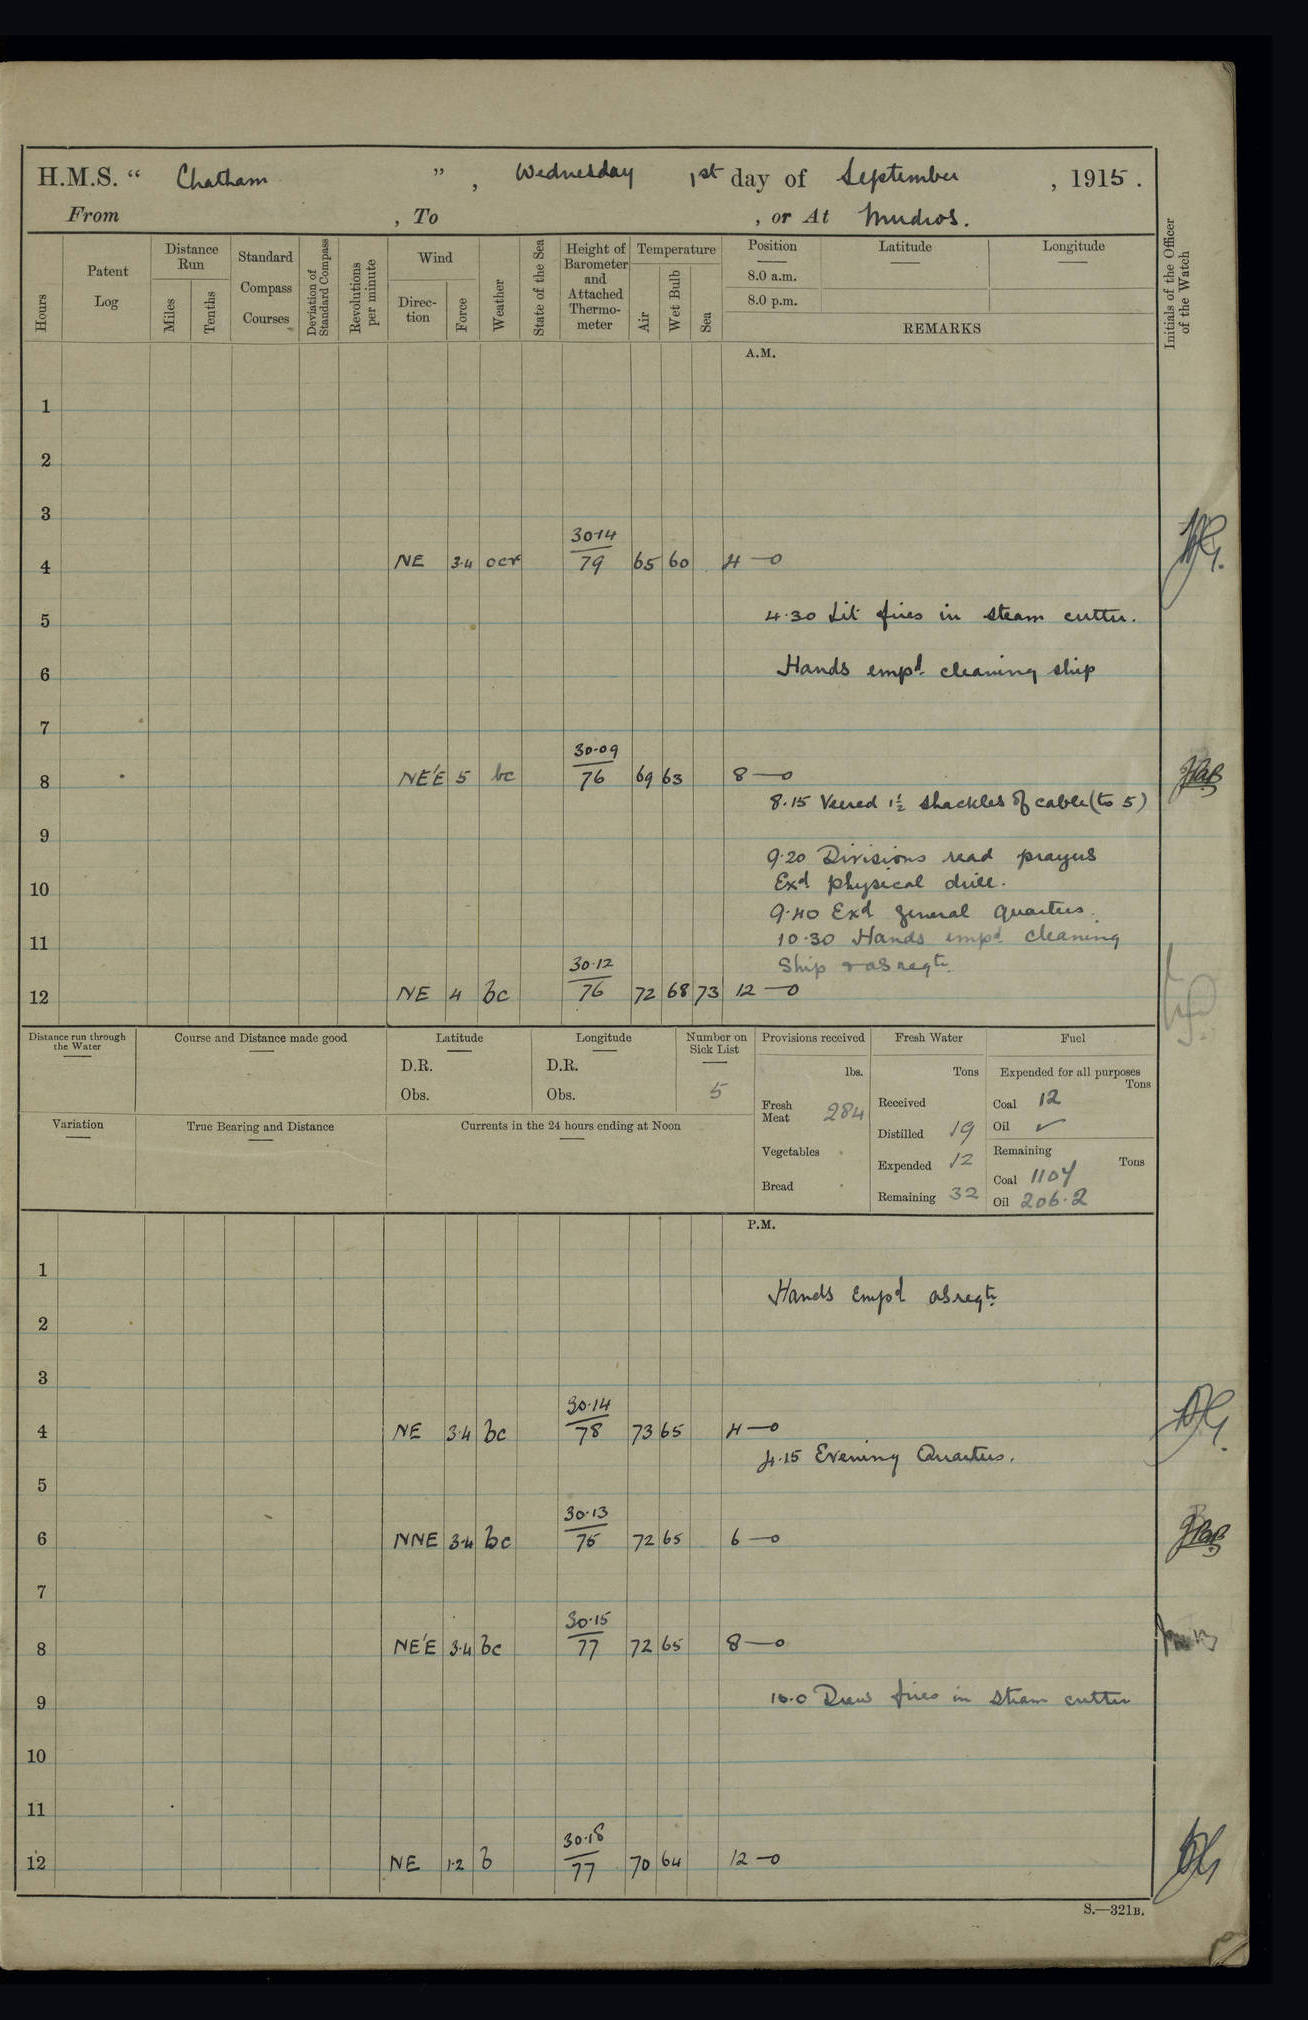 H.M.S. “ Chatham ”, Wednesday 1st day of September, 1915.
From , To , or At Mudros.
Hours
Patent Log
Distance Run
Miles
Tenths
Standard Compass Courses
Deviation of Standard Compass
Revolutions per minute
Wind
Direction
Force
Weather
State of the Sea
Height of Barometer and Attached Thermometer
Temperature
Air
Wet Bulb
Sea
Position
8.0 a.m.
8.0 p.m.
Latitude
Longitude
REMARKS
Initials of the Officer of the Watch
A.M.
1
2
3
30·14
4 NE 3·4 ocr 79 65 60 4—0
4·30 Lit fires in steam cutter.
5
Hands empd. cleaning ship
6
7
30·09
8 NE'E 5 bc 76 69 63 8—0
8·15 Veered 1½ shackles of cable (to 5)
9
9·20 Divisions read prayers
Exd physical drill.
10
9·40 Exd general quarters.
11 10·30 Hands empd cleaning
30·12 Ship & as reqte.
12 NE 4 bc 76 72 68 73 12—0
Distance run through the Water
Course and Distance made good
Latitude
D.R.
Obs.
Longitude
D.R.
Obs.
Number on Sick List
5
Provisions received
lbs.
Fresh Meat 284
Vegetables
Bread
Fresh Water
Tons
Received
Distilled 19
Expended 12
Remaining 32
Fuel
Expended for all purposes
Tons
Coal 12
Oil ✓
Remaining
Tons
Coal 1104
Oil 206·2
Variation
True Bearing and Distance
Currents in the 24 hours ending at Noon
P.M.
1
Hands Empd as reqte.
2
3
30·14
4 NE 3·4 bc 78 73 65 4—0
4·15 Evening Quarters.
5
30·13
6 NNE 3·4 bc 75 72 65 6—0
7
30·15
8 NE'E 3·4 bc 77 72 65 8—0
9 10·0 Drew fires in steam cutter
10
11
30·18
12 NE 1·2 b 77 70 64 12—0
S.—321B.